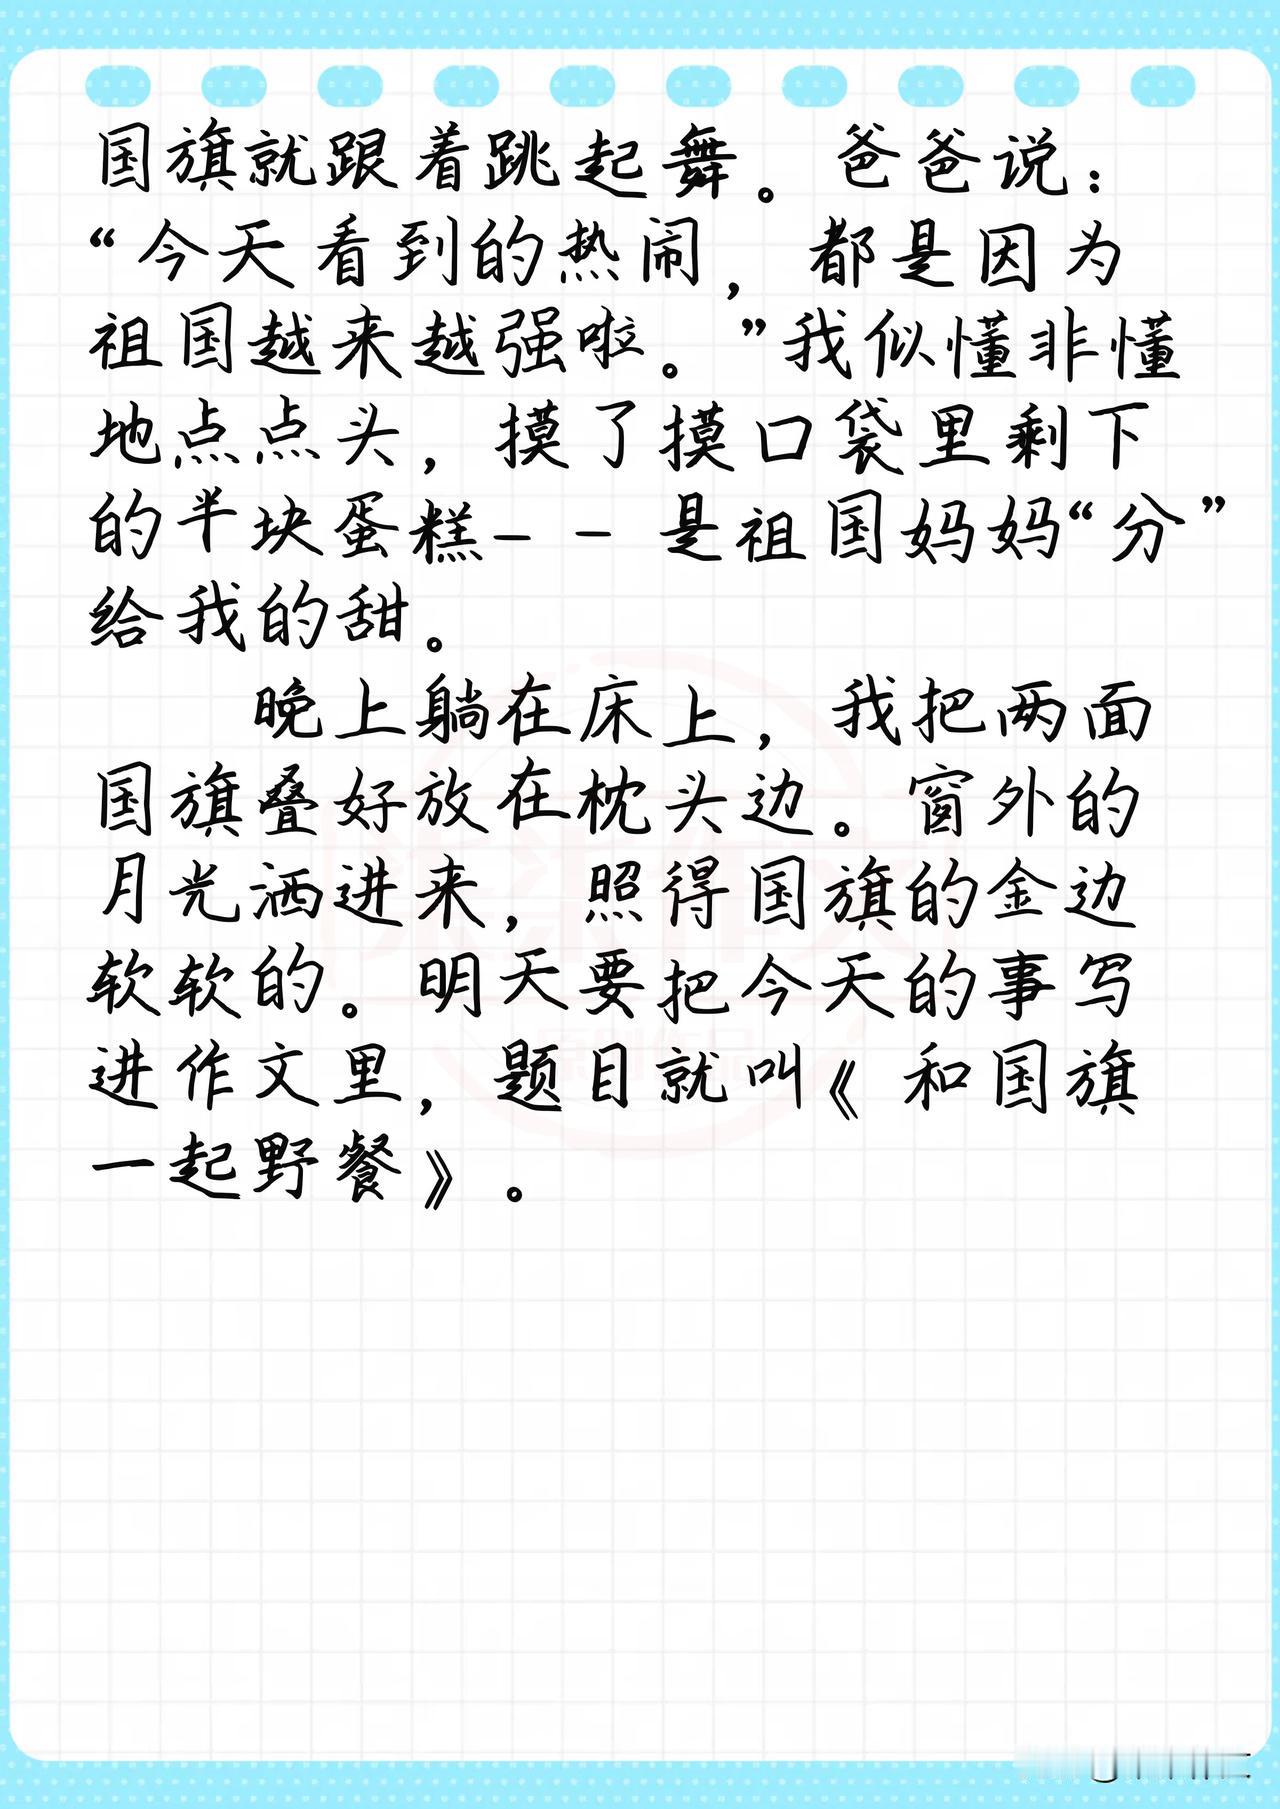 国旗就跟着跳起舞。爸爸说：
“今天看到的热闹，都是因为
祖国越来越强啦。”我似懂非懂
地点点头，摸了摸口袋里剩下
的半块蛋糕--是祖国妈妈“分”
给我的甜。
晚上躺在床上，我把两面
国旗叠好放在枕头边。窗外的
月光洒进来，照得国旗的金边
软软的。明天要把今天的事写
进作文里，题目就叫《和国旗
一起野餐》。
原创作品